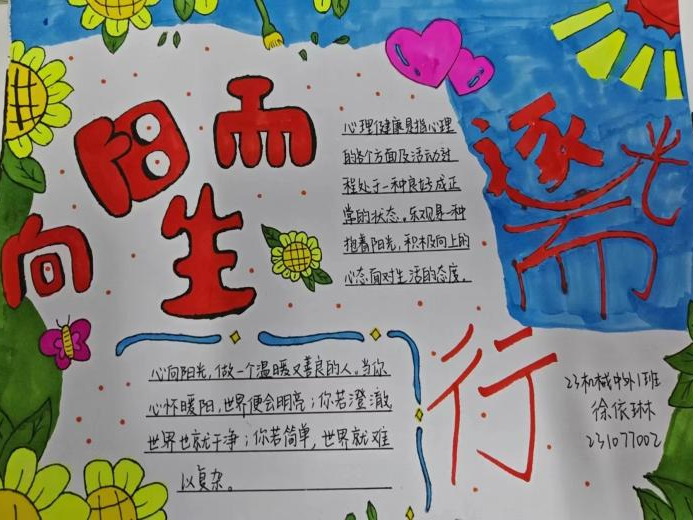 向阳而生
逐光而行
心理健康是指心理
的各个方面及活动过
程处于一种良好或正
常的状态。乐观是一种
抱着阳光，积极向上的
心态面对生活的态度。
心向阳光，做一个温暖又善良的人。当你
心怀暖阳，世界便会明亮；你若澄澈
世界也就干净；你若简单，世界就难
以复杂。
23机械中外1班
徐依琳
231077002